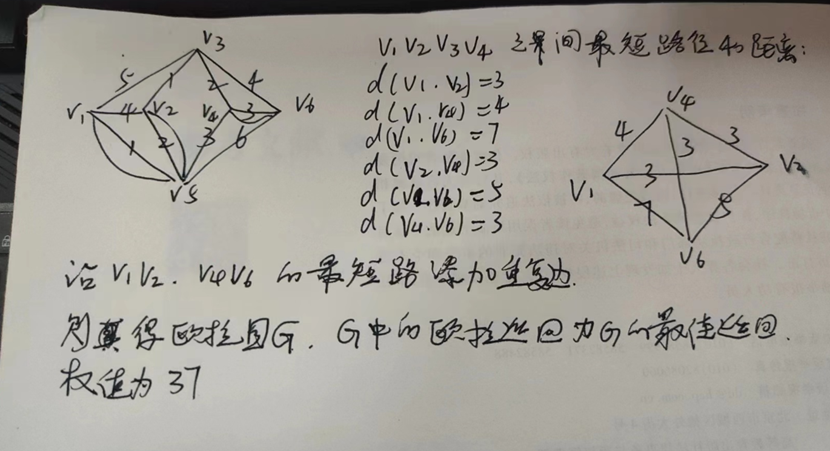 V3
5 1 2 4
V1 4 V2 V4 3 V6
1 2 3 6
V5
V1 V2 V3 V4 之间最短路径的距离:
d(V1.V2)=3
d(V1.V4)=4
d(V1.V6)=7
d(V2.V4)=3
d(V2.V6)=5
d(V4.V6)=3
V4
4 3 3
V1 3 V2
7 5
V6
沿V1V2.V4V6的最短路添加重复边.
则得欧拉图G.G中的欧拉巡回为G的最佳巡回.
权值为37